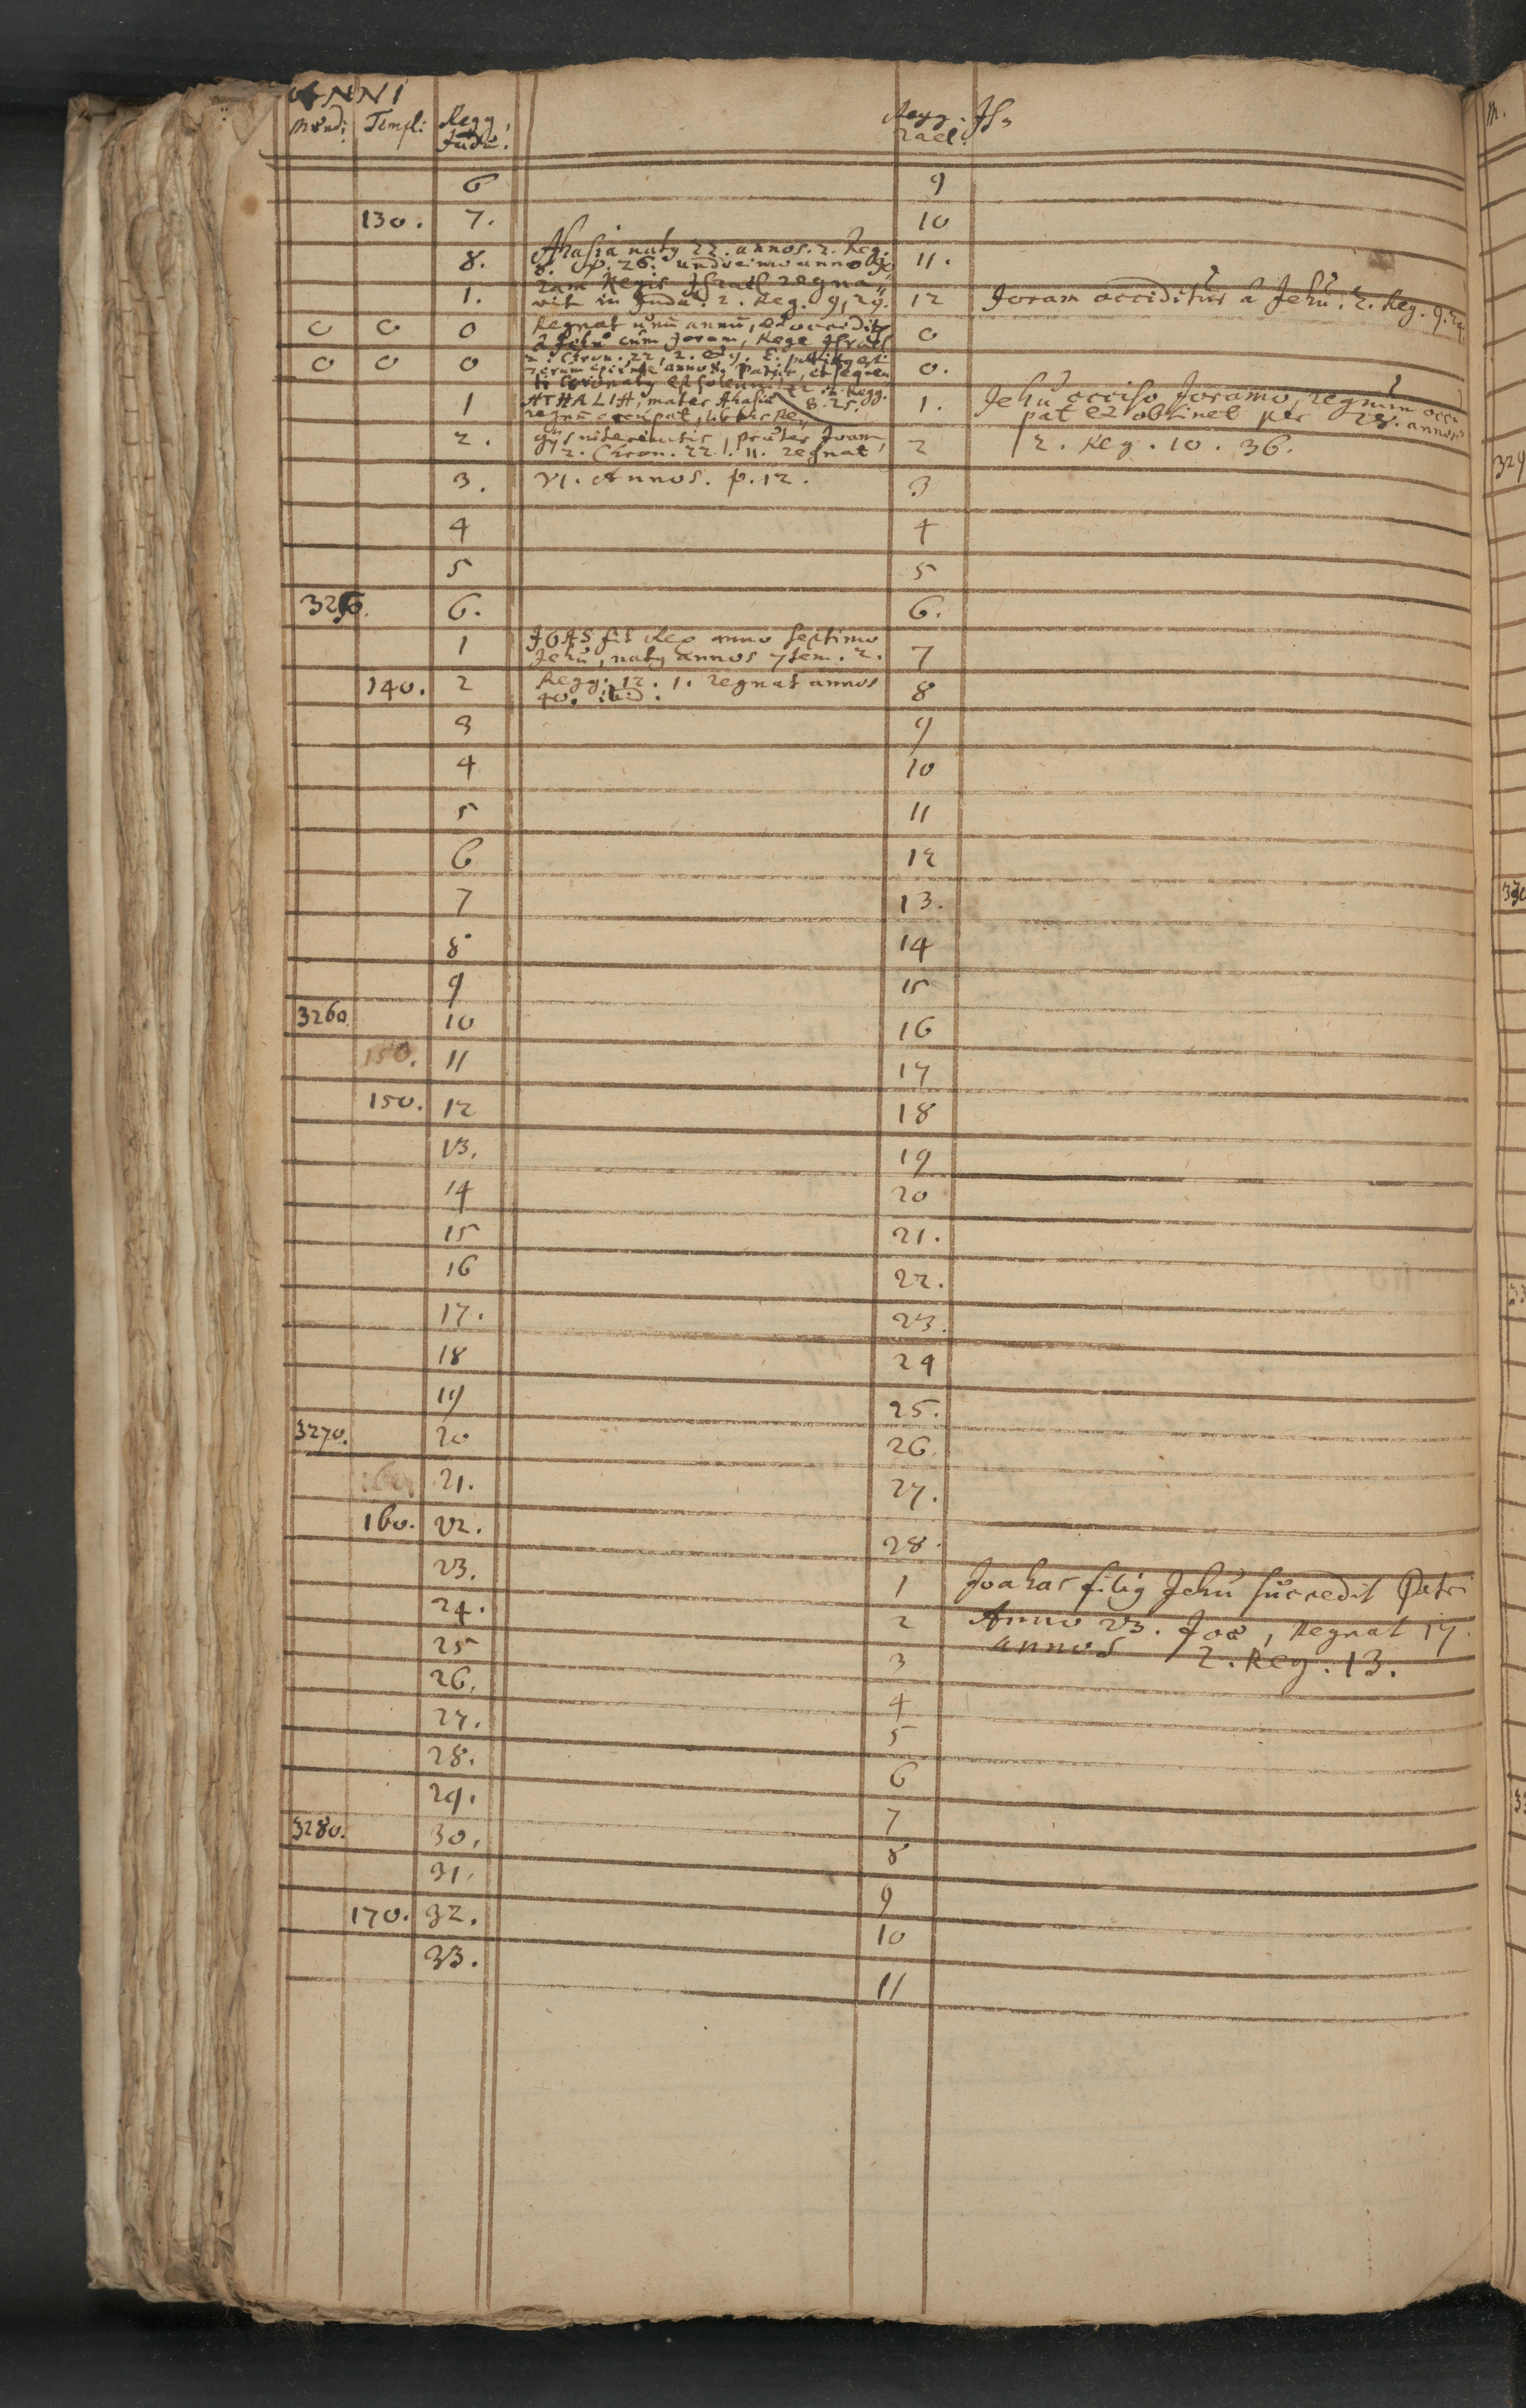 ANNI
Mundi Templi Regg. Regg. Is„
Judæ. rael.
6 9
130. 7. 10
8. Ahasia natg 22. annos. 2. Reg. 11.
8. v. 26. undecimo anno Jo„
ram Regis Israel regna„
1. vit in Juda. 2. Reg. 9, 29. 12 Joram occiditur à Jehu. 2. Reg. 9. 24
0 0 0 Regnat unū annū, et occidit 0
à Jehu cum Joram, Rege Israel
0 0 0 2. Chron. 22, 2. 0.
1 ATHALIA, mater Ahasiæ 8. 25. 1. Jehu occiso Joramo, regnum occu
regnū occupat, pat et obtinet per 28. annos
2. præter Joam, 2 2. Reg. 10. 36.
2. Chron. 22. 11. regnat
3. VI. Annos. p. 12. 3
4 4
5 5
3250. 6. 6.
1 JOAS fit Rex anno septimo 7
Jehu, natg annos 7tem. 2.
140. 2 Regg. 12. 1. regnat annos 8
40. ibid.
3 9
4 10
5 11
6 12
7 13.
8 14
9 15
3260 10 16
150. 11 17
150. 12 18
13. 19
14 20
15 21.
16 22.
17. 23.
18 24
19 25.
3270. 20 26
21. 27.
160. 22. 28.
23. 1 Joahas filig Jehu succedit Patri
24. 2 Anno 23. Joæ, Regnat 17.
25 3 annos 2. Reg. 13.
26. 4
27. 5
28. 6
29. 7
3280. 30. 8
31. 9
170. 32. 10
33. 11